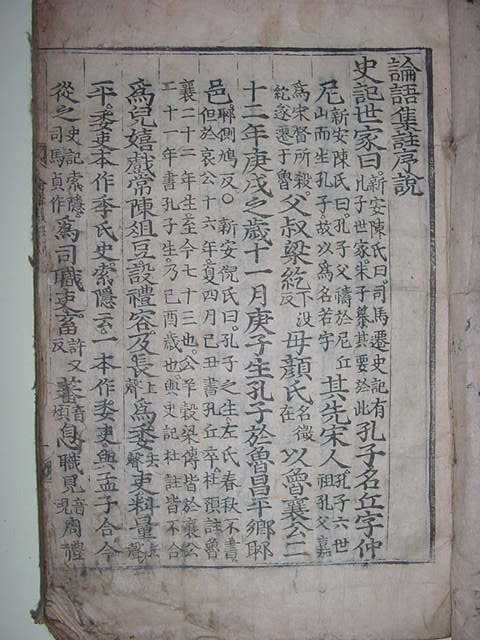 論語集註序說
史記世家曰新安陳氏曰司馬遷史記有孔子世家朱子擧其要於此孔子名丘字仲
尼新安陳氏曰孔子父禱於尼丘山而生孔子故以爲名若字其先宋人孔子六世祖孔父嘉
爲宋督所殺紇遂遷于魯父叔梁紇下沒反母顔氏名徵在以魯襄公二
十二年庚戌之歲十一月庚子生孔子於魯昌平鄕郰
邑郰側鳩反○新安倪氏曰孔子之生左氏春秋不書但於哀公十六年夏四月己丑書孔丘卒杜預註魯
襄二十二年生至今七十三也公羊穀梁傳皆於襄公二十一年書孔子生乃己酉歲也與史記杜註皆不合
爲兒嬉戲常陳俎豆設禮容及長上聲爲委去聲吏料量去聲
平委吏本作季氏史索隱云一本作委吏與孟子合今
從之史記索隱司馬貞作爲司職吏畜許又反蕃音煩息職見音現周禮